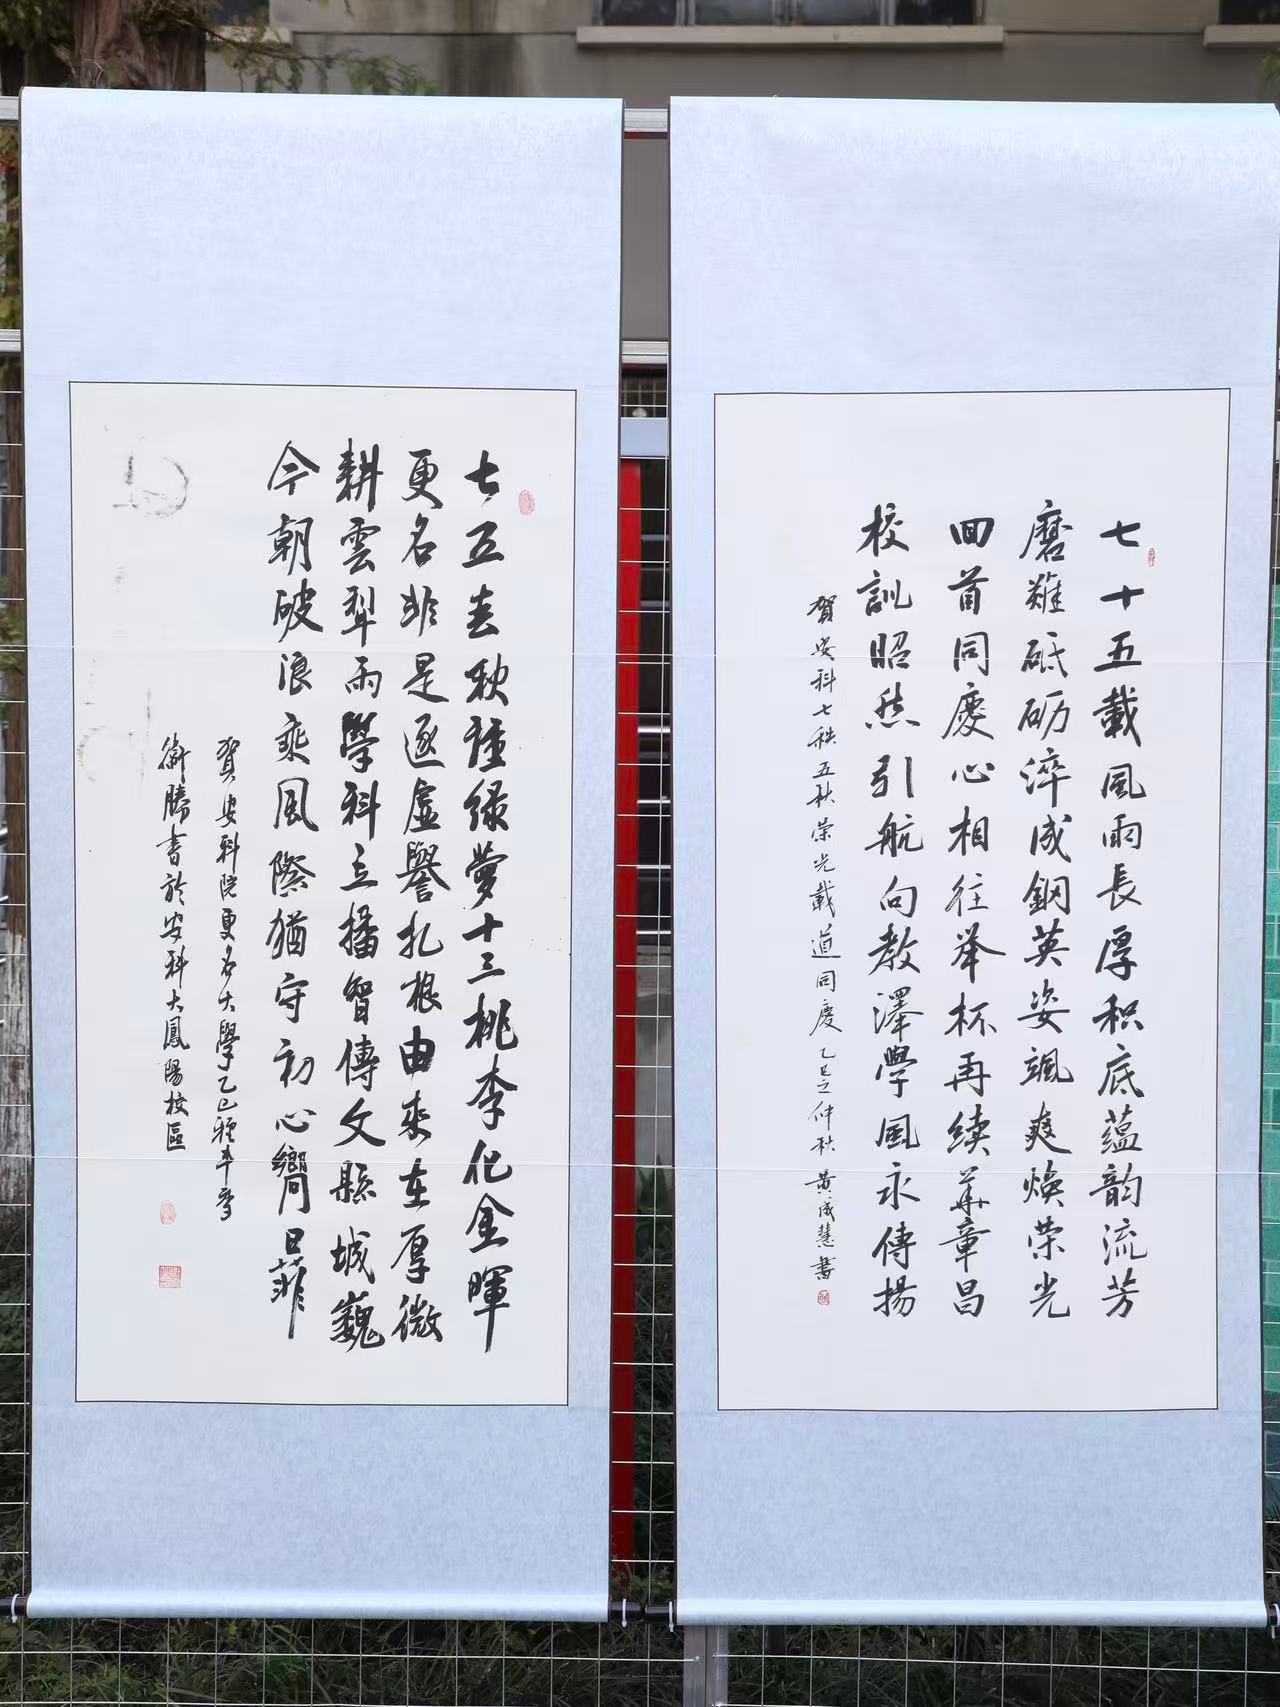 七十五載風雨長厚积底蕴韵流芳
磨難砥砺淬成鋼英姿颯爽焕荣光
回首同慶心相往举杯再续華章昌
校訓昭然引航向教澤學風永傳揚
賀安科七秩五秋荣光載道同慶乙巳之仲秋黄成慧書
七五春秋種绿夢十三桃李化金暉
更名非是逐虚譽扎根由来在厚微
耕雲犁雨學科立播智傳文縣城巍
今朝破浪乘風際猶守初心嚮日菲
賀安科院更名大學乙巳種李
衛勝書於安科大鳳陽校區